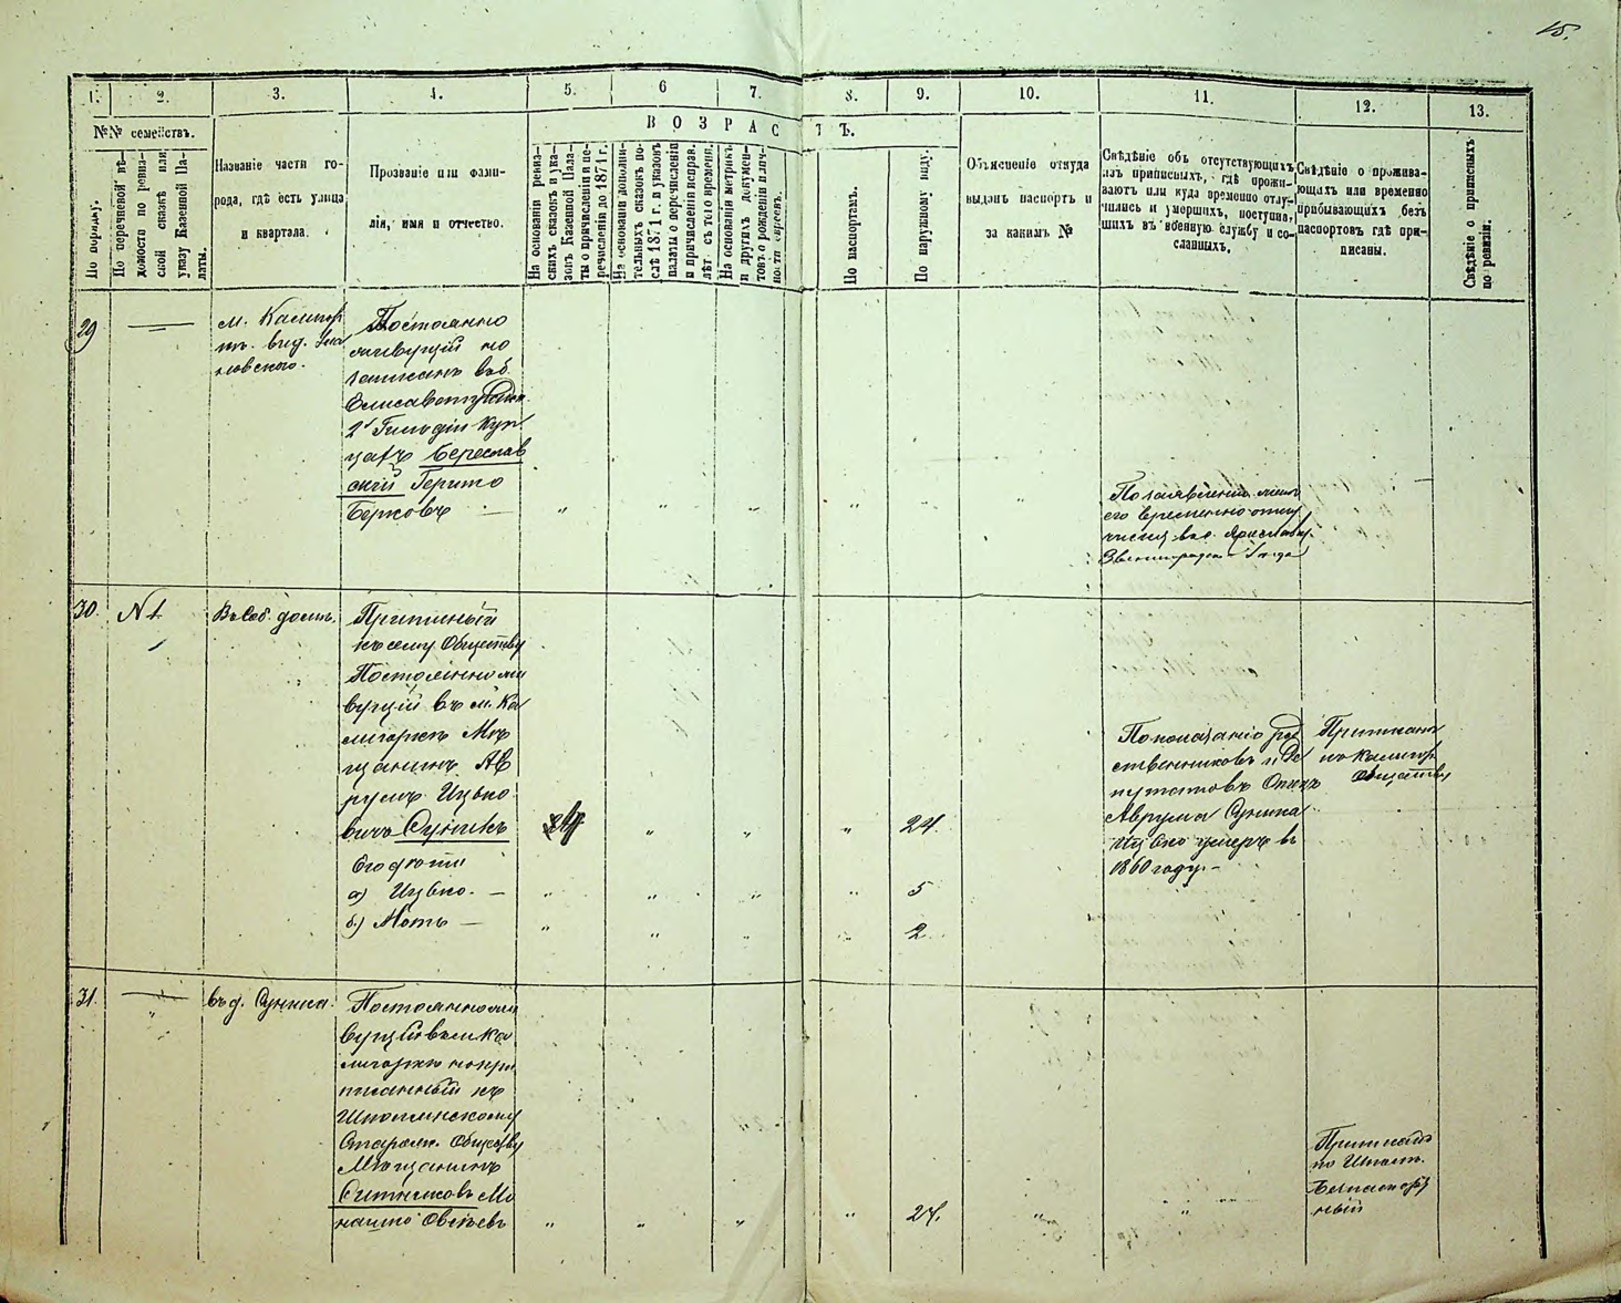 15.
1.
2.
3.
4.
5.
6
7.
8.
9.
10.
11.
12.
13.
№№ семействъ.
ВОЗРАСТЪ.
По порядку.
По перечневой вѣ-
домости по ревиз-
ской сказкѣ или
указу Казенной Па-
латы.
Названіе части го-
рода, гдѣ есть улица
и квартала.
Прозваніе или фами-
лія, имя и отчество.
На основаніи ревиз-
скихъ сказокъ и ука-
зовъ Казенной Пала-
ты о причисленіи и пе-
речисленіи до 1871 г.
На основаніи дополни-
тельныхъ сказокъ по-
слѣ 1871 г. и указовъ
палаты о перечисленіи
и причисленіи исправ.
лѣт. съ того времени.
На основаніи метрикъ
и другихъ докумен-
товъ о рожденіи и лич-
ности евреевъ.
По паспортамъ.
По наружному виду.
Объясненіе откуда
выданъ паспортъ и
за какимъ №
Свѣдѣніе объ отсутствующихъ
изъ приписныхъ, гдѣ прожи-
ваютъ или куда временно отлу-
чились и умершихъ, поступив-
шихъ въ военную службу и со-
сланныхъ.
Свѣдѣніе о прожива-
ющихъ или временно
прибывающихъ безъ
паспортовъ гдѣ при-
писаны.
Свѣдѣніе о приписныхъ
по ревизіи.
29
Постоянно
живущій но
записанъ въ
2й Гильдіи Куп
цахъ Береслав
скій Гершко
Берковъ
30.
№ 1
Въ соб. домѣ.
Приписный
къ сему Обществу
Постоянно жи
вущій въ м. Ка
лигоркѣ Мѣ
щанинъ Ав
румъ Ицько
вичъ Суникъ
24
Его дѣти
а) Ицько. —
5
б) Мотъ —
2
По показанію род
ственниковъ и Де
путатовъ Отецъ
Аврума Суника
Ицько умеръ въ
1860 году. –
Приписанъ
по Калигор.
Обществу
31.
въ д. Суника.
Постоянно жи
вущій въ м. Ка
лигоркѣ но при
писанный къ
Шполянскому
Обществу
Мѣщанинъ
Ситниковъ Мо
24.
Приписанъ
по Шполѣ.
Безпаспорт
ный